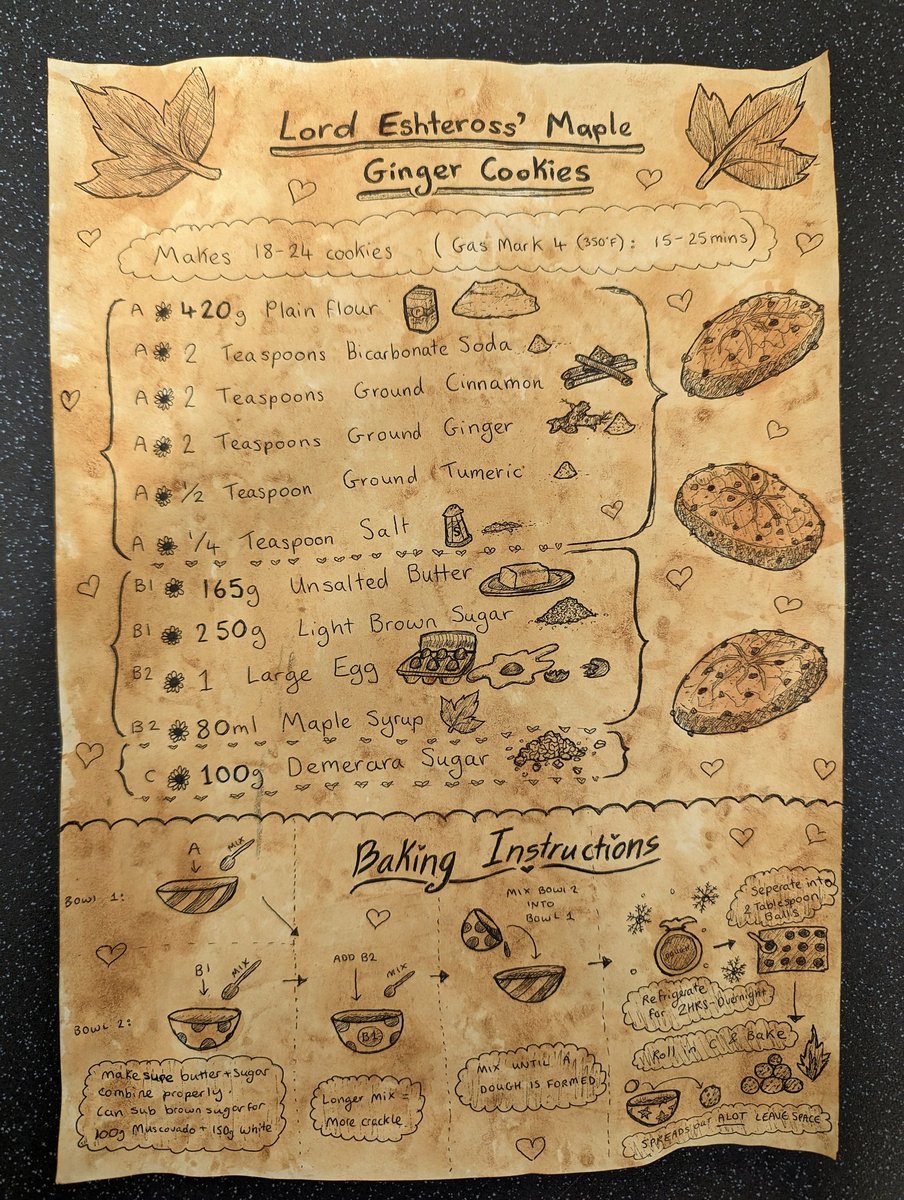 Lord Eshteross' Maple
Ginger Cookies
Makes 18-24 cookies (Gas Mark 4 (350°F): 15-25mins)
A 420g Plain flour
A 2 Teaspoons Bicarbonate Soda
A 2 Teaspoons Ground Cinnamon
A 2 Teaspoons Ground Ginger
A ½ Teaspoon Ground Tumeric
A ¼ Teaspoon Salt
S
B1 165g Unsalted Butter
B1 250g Light Brown Sugar
B2 1 Large Egg
B2 80ml Maple Syrup
C 100g Demerara Sugar
Baking Instructions
Bowl 1:
A
MIX
Bowl 2:
B1
MIX
make sure butter + sugar
combine properly.
can sub brown sugar for
100g Muscovado + 150g white
ADD B2
MIX
B1
Longer mix =
More crackle
MIX BOWL 2
INTO
BOWL 1
MIX UNTIL A
DOUGH IS FORMED
DOUGH
Refrigerate
for 2HRS-Overnight
Seperate into
2 Tablespoon
Balls
Roll in & Bake
SPREADS out ALOT LEAVE SPACE